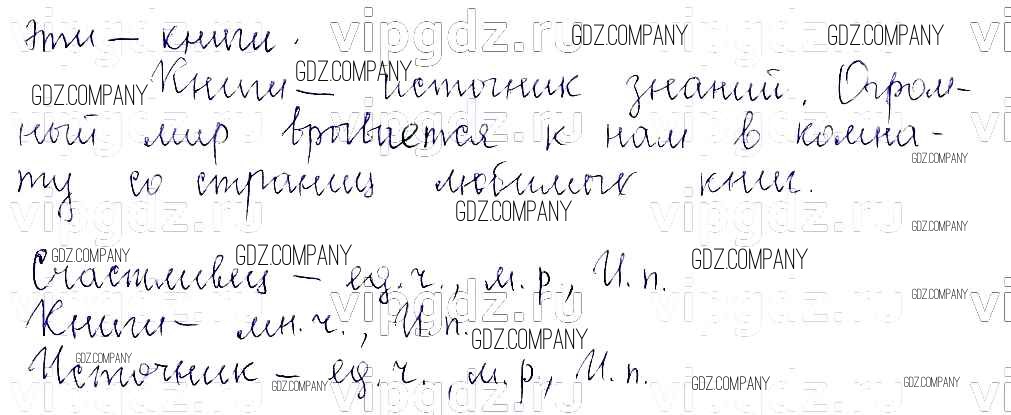 эти — книги.
Книги — источник знаний. Огром-
ный мир врывается к нам в комна-
ту со страниц любимых книг.
Счастливец — ед.ч., м.р., И.п.
Книги — мн.ч., И.п.
Источник — ед.ч., м.р., И.п.
vipgdz.ru
GDZ.COMPANY